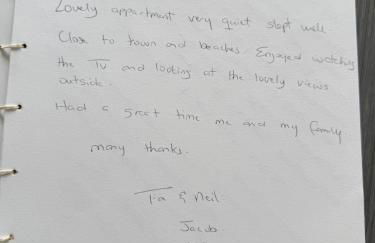 Lovely appartment very quiet slept well
Close to town and beaches. Enjoyed watching
the TV and looking at the lovely views
outside.
Had a great time me and my family
many thanks.
Tia & Neil
Jacob